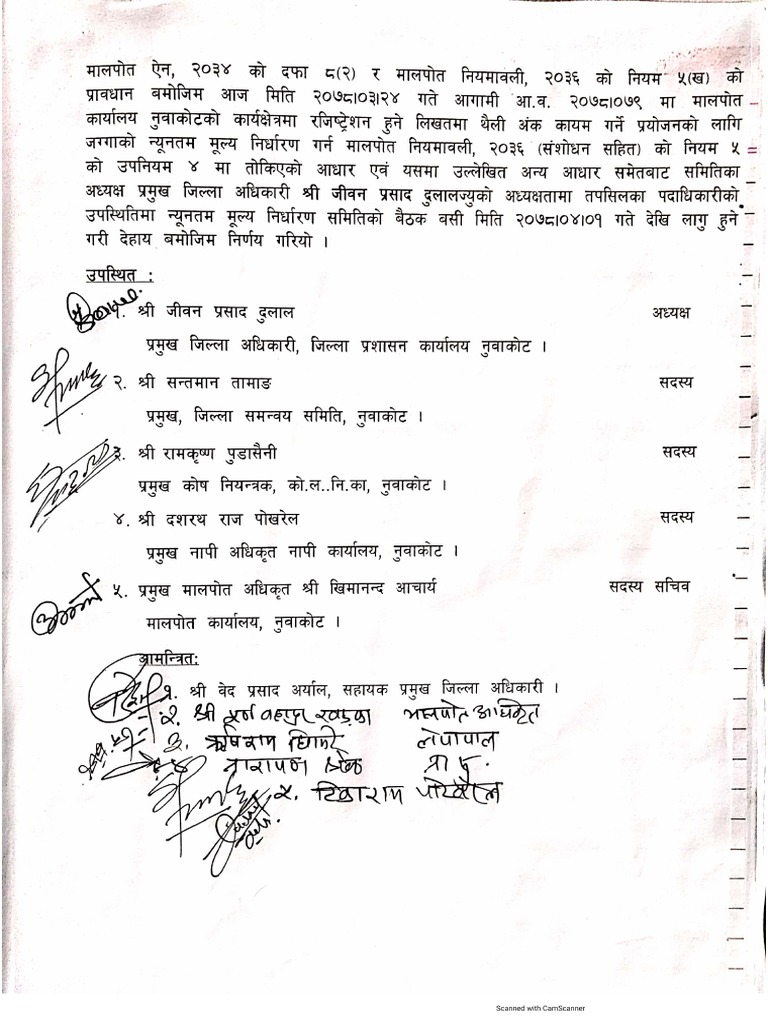 मालपोत ऐन, २०३४ को दफा ८(२) र मालपोत नियमावली, २०३६ को नियम ५(ख) को
प्रावधान बमोजिम आज मिति २०७८।०३।२४ गते आगामी आ.व. २०७८।०७९ मा मालपोत
कार्यालय नुवाकोटको कार्यक्षेत्रमा रजिष्ट्रेशन हुने लिखतमा थैली अंक कायम गर्ने प्रयोजनको लागि
जग्गाको न्यूनतम मूल्य निर्धारण गर्न मालपोत नियमावली, २०३६ (संशोधन सहित) को नियम ५
को उपनियम ४ मा तोकिएको आधार एवं यसमा उल्लेखित अन्य आधार समेतबाट समितिका
अध्यक्ष प्रमुख जिल्ला अधिकारी श्री जीवन प्रसाद दुलालज्युको अध्यक्षतामा तपसिलका पदाधिकारीको
उपस्थितिमा न्यूनतम मूल्य निर्धारण समितिको बैठक वसी मिति २०७८।०४।०१ गते देखि लागु हुने
गरी देहाय बमोजिम निर्णय गरियो ।
उपस्थित :
१. श्री जीवन प्रसाद दुलाल अध्यक्ष
प्रमुख जिल्ला अधिकारी, जिल्ला प्रशासन कार्यालय नुवाकोट ।
२. श्री सन्तमान तामाङ सदस्य
प्रमुख, जिल्ला समन्वय समिति, नुवाकोट ।
३. श्री रामकृष्ण पुडासैनी सदस्य
प्रमुख कोष नियन्त्रक, को.ल..नि.का, नुवाकोट ।
४. श्री दशरथ राज पोखरेल सदस्य
प्रमुख नापी अधिकृत नापी कार्यालय, नुवाकोट ।
५. प्रमुख मालपोत अधिकृत श्री खिमानन्द आचार्य सदस्य सचिव
मालपोत कार्यालय, नुवाकोट ।
आमन्त्रित:
१. श्री वेद प्रसाद अर्याल, सहायक प्रमुख जिल्ला अधिकारी ।
२. श्री पूर्ण बहादुर खड्का मालपोत अधिकृत
३. ऋषिराम घिमिरे लेखापाल
४. नारायण श्रेष्ठ
५. टिकाराम पोखरेल
Scanned with CamScanner